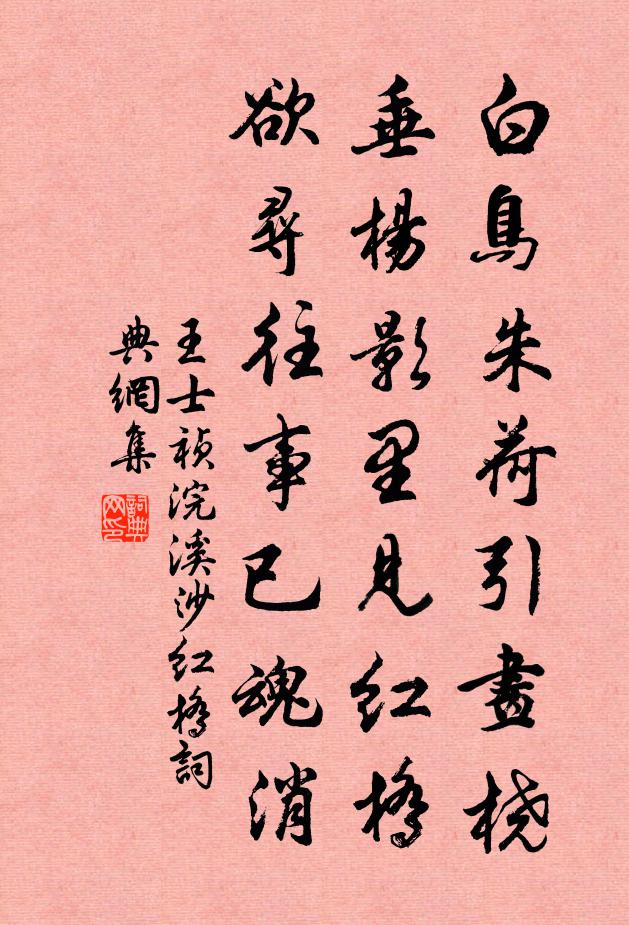 白鳥朱荷引畫橈
垂楊影里見紅橋
欲尋往事已魂消
王士祯浣溪沙紅橋詞
典網集
詞典网印